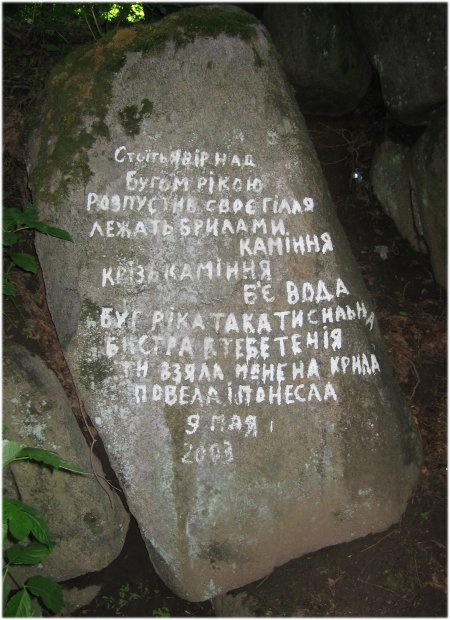 СтоїтьЯВІР НАД
БУГОМ РІКОЮ
РОЗПУСТИВ СВОЄ ГІЛЛЯ
ЛЕЖАТЬ БРИЛАМИ.
КАМІННЯ
КРІЗЬ КАМІННЯ
Б'Є ВОДА
БУГ РІКА ТАКА ТИ СИЛЬНА
БИСТРА В ТЕБЕ ТЕЧІЯ
ТИ ВЗЯЛА МЕНЕ НА КРИЛА
ПОВЕЛА І ПОНЕСЛА
9 МАЯ
2003